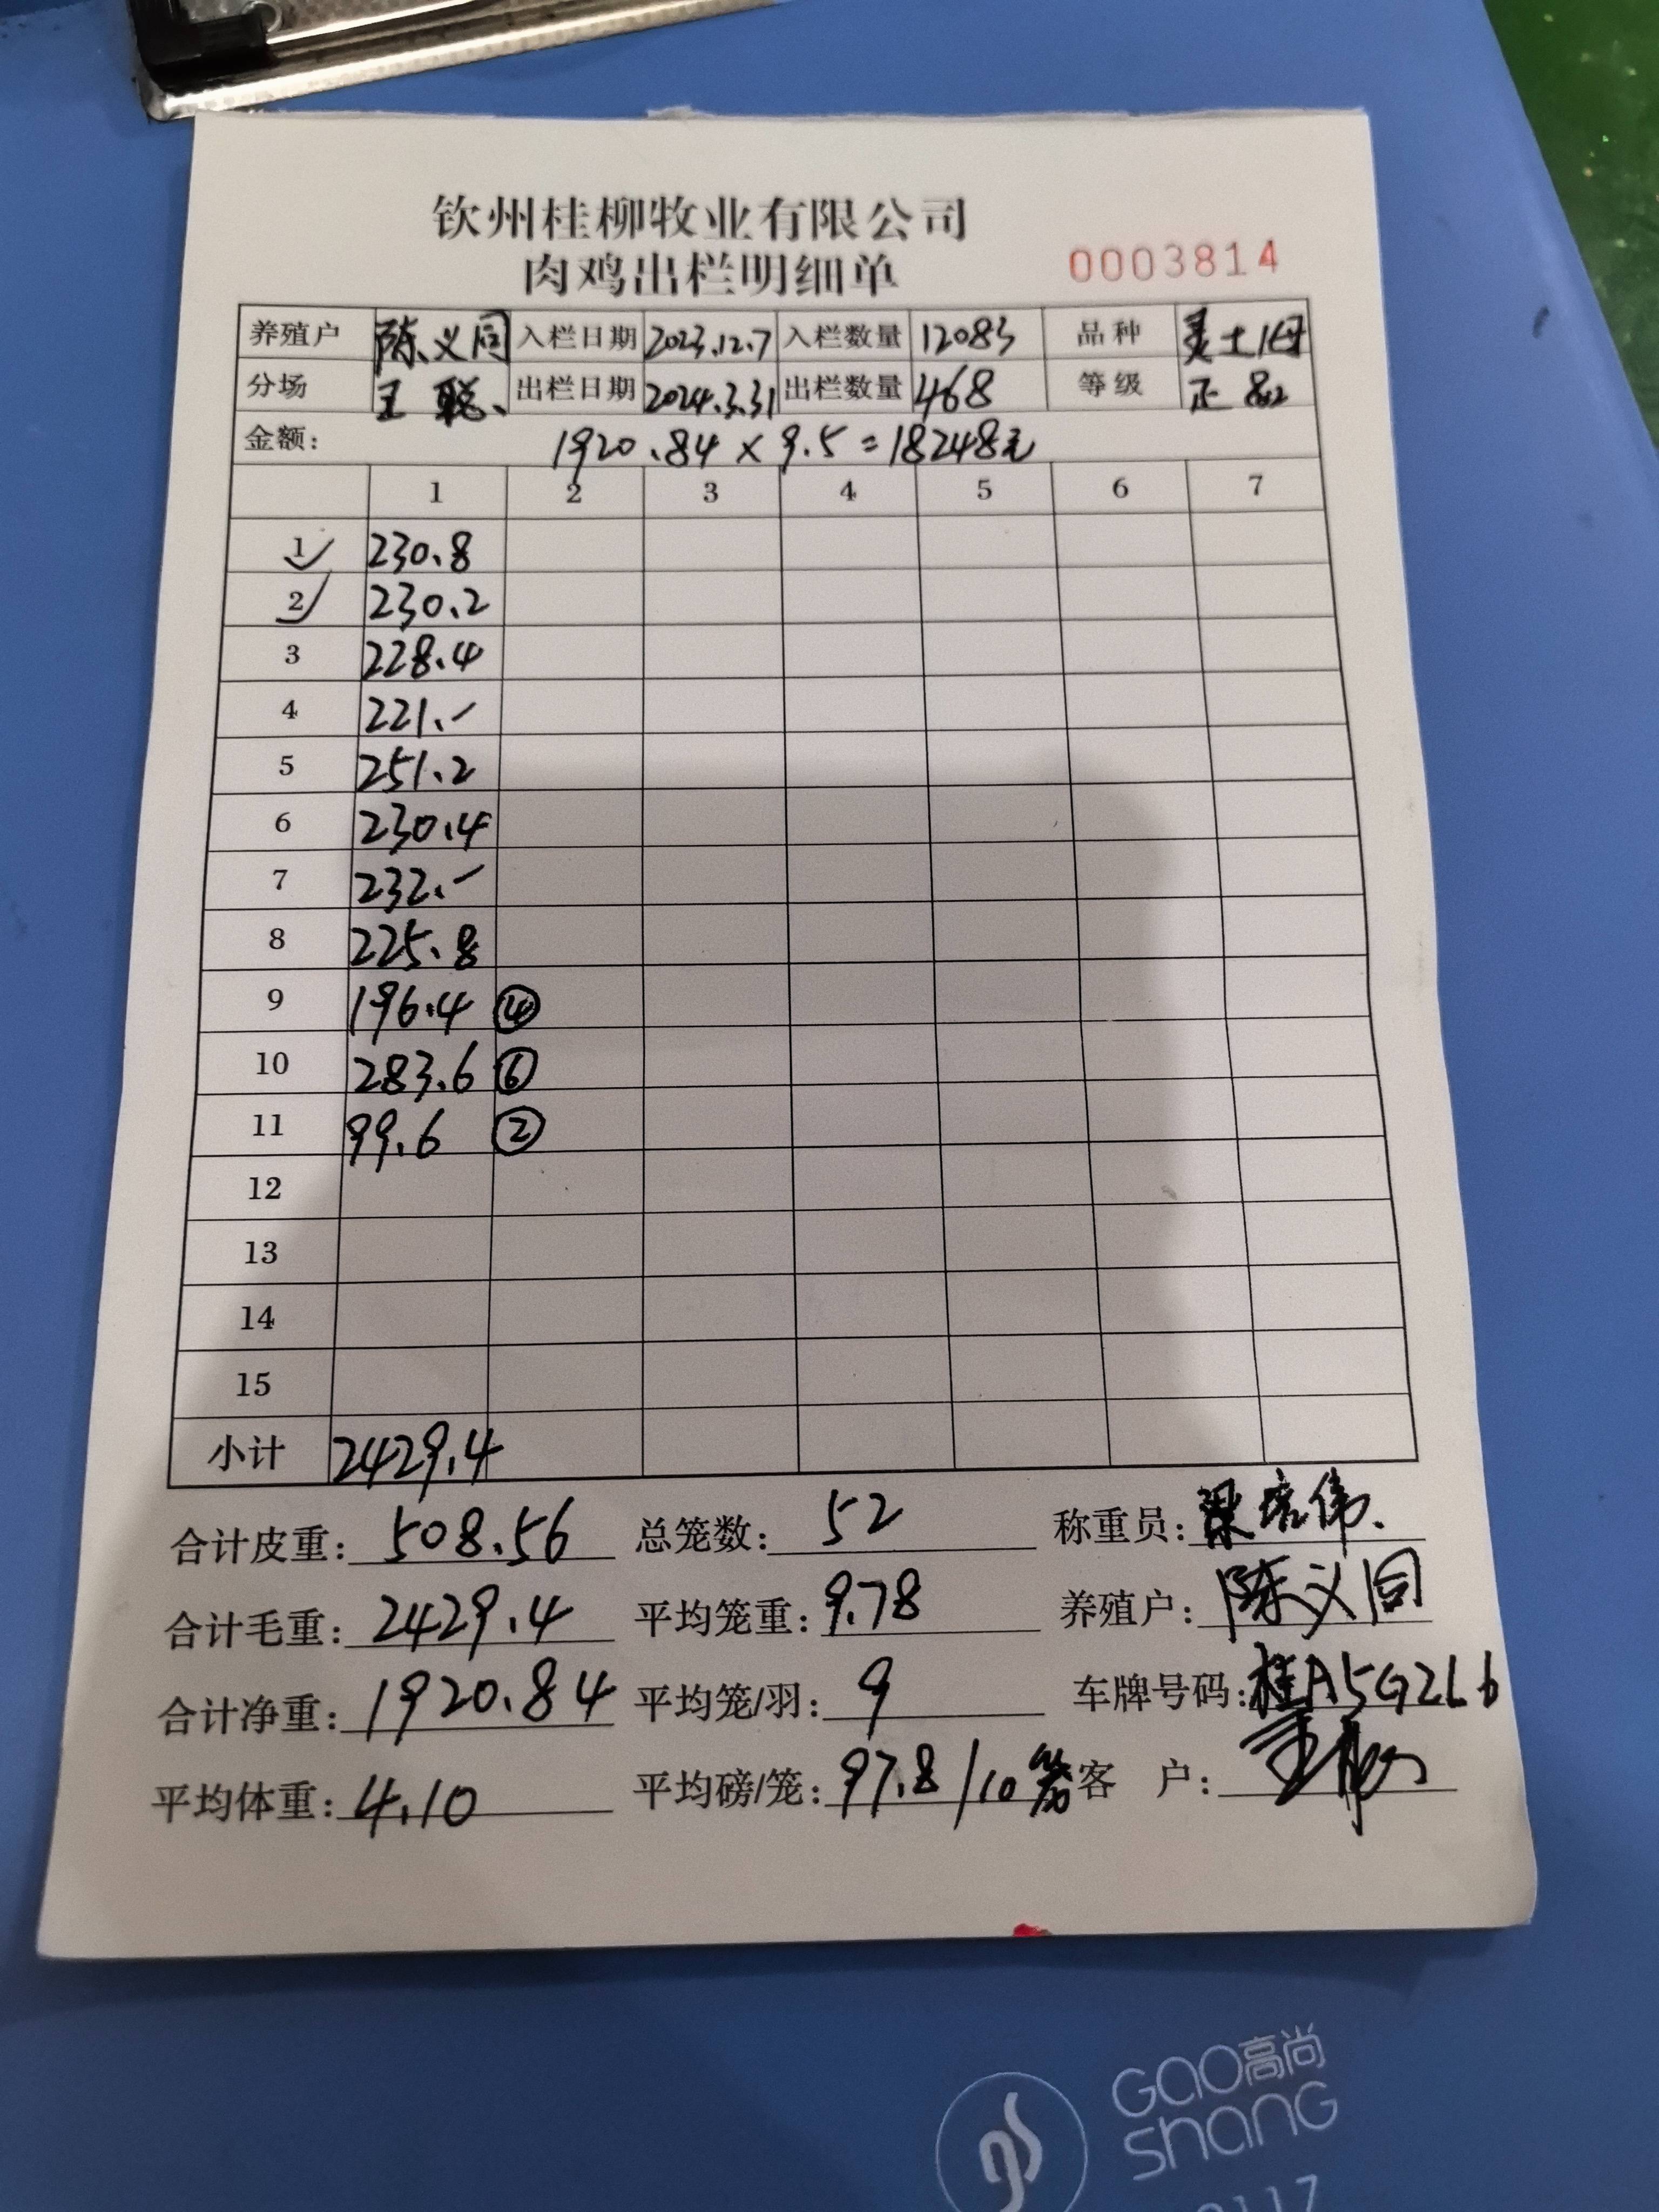 钦州桂柳牧业有限公司
肉鸡出栏明细单 0003814
养殖户 陈义同 入栏日期 2023.12.7 入栏数量 12083 品种 灵土1母
分场 王聪、 出栏日期 2024.3.31 出栏数量 468 等级 正
金额: 1920.84 × 9.5 = 18248元
1 2 3 4 5 6 7
1 230.8
2 230.2
3 228.4
4 221.-
5 251.2
6 230.4
7 232.-
8 225.8
9 196.4 ④
10 283.6 ⑥
11 99.6 ②
12
13
14
15
小计 2429.4
合计皮重: 508.56 总笼数: 52 称重员: 梁培伟、
合计毛重: 2429.4 平均笼重: 9.78 养殖户: 陈义同
合计净重: 1920.84 平均笼/羽: 9 车牌号码: 桂A5G2L6
平均体重: 4.10 平均磅/笼: 97.8/10 客 户:
GAO高尚
SHANG